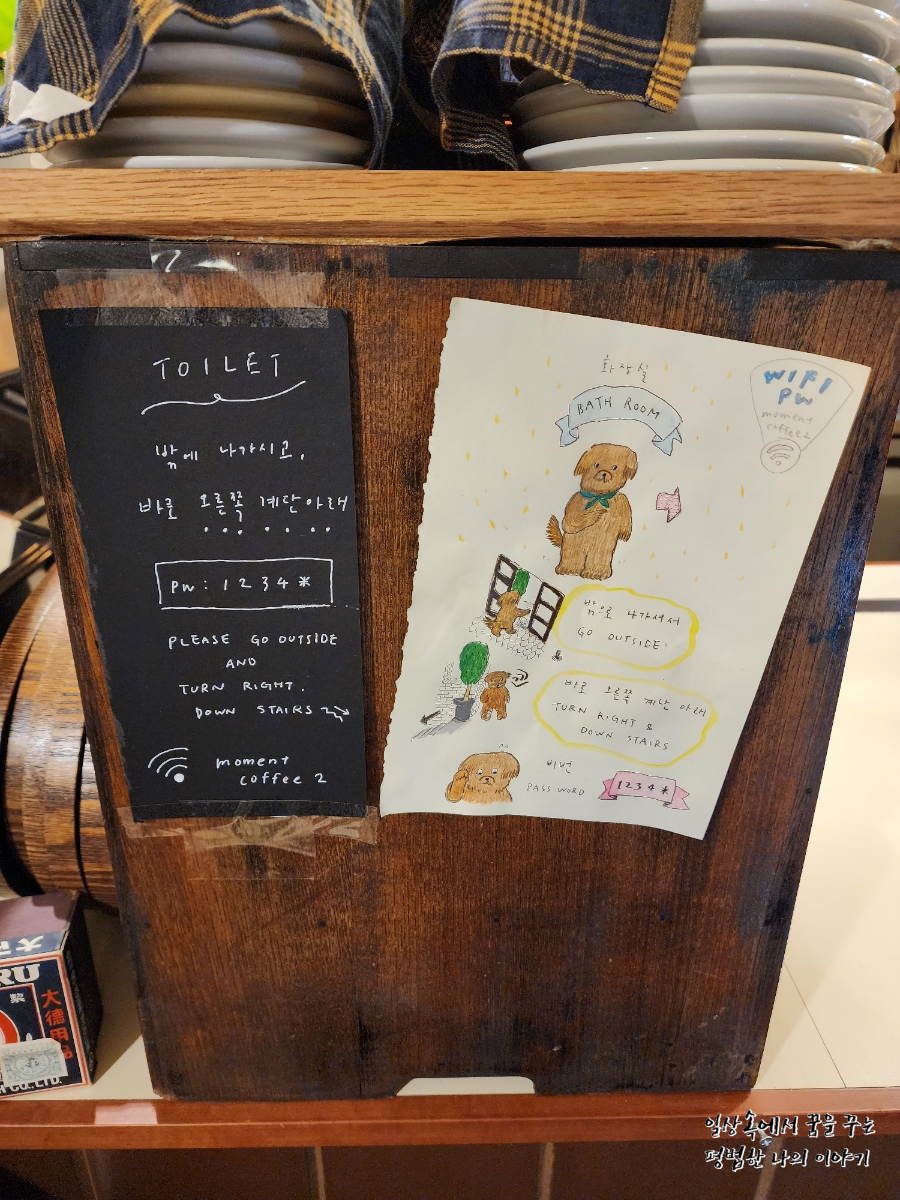 TOILET
밖에 나가시고,
바로 오른쪽 계단아래
PW: 1234*
PLEASE GO OUTSIDE
AND
TURN RIGHT.
DOWN STAIRS
moment
coffee 2
화장실
BATH ROOM
WIFI
PW
moment
coffee 2
밖으로 나가셔서
GO OUTSIDE.
바로 오른쪽 계단 아래
TURN RIGHT &
DOWN STAIRS
비번
PASS WORD
1234*
RU
大德用品
CO.LTD.
일상속에서 꿈을 꾸는
평범한 나의 이야기